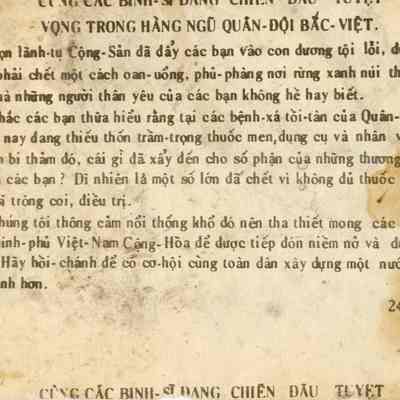 CÙNG CÁC BINH-SĨ ĐANG CHIẾN ĐẤU TUYỆT
VỌNG TRONG HÀNG NGŨ QUÂN-ĐỘI BẮC-VIỆT.
lãnh-tu Cộng-Sản đã đẩy các bạn vào con dương tội lỗi,
phải chết một cách oan-uổng, phủ-phàng nơi rừng xanh núi
những người thân yêu của các bạn không hề hay biết.
các bạn thừa hiểu rằng tại các bệnh-xá tồi-tàn của Quân-
nay đang thiếu thốn trầm-trọng thuốc men, dụng cụ và nhân
bi thảm đó, cái gì đã xẩy đến cho số phận của những thương
các bạn? Dĩ nhiên là một số lớn đã chết vì không đủ thuốc
sĩ trông coi, điều trị.
tôi thông cảm nổi thống khổ đó nên tha thiết mong các
phủ Việt-Nam Cộng-Hòa để được tiếp đón niềm nở và
Hãy hồi-chánh để có cơ-hội cùng toàn dân xây dựng một
hơn.
CÙNG CÁC BINH-SĨ ĐANG CHIẾN ĐẤU TUYỆT